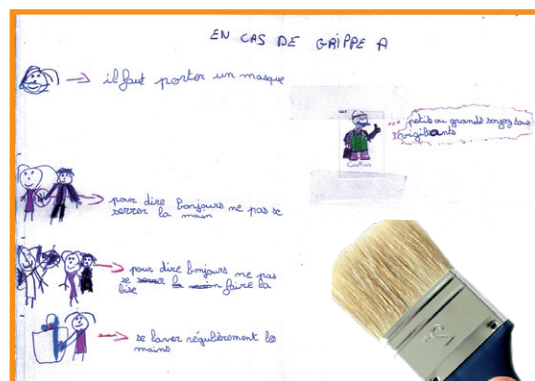 EN CAS DE GRIPPE A
il faut porter un masque
petits ou grands soyez tous
vigilants
pour dire bonjours ne pas se
serrer la main
pour dire bonjours ne pas
se serrer la main faire la
bise
se laver régulièrement les
mains